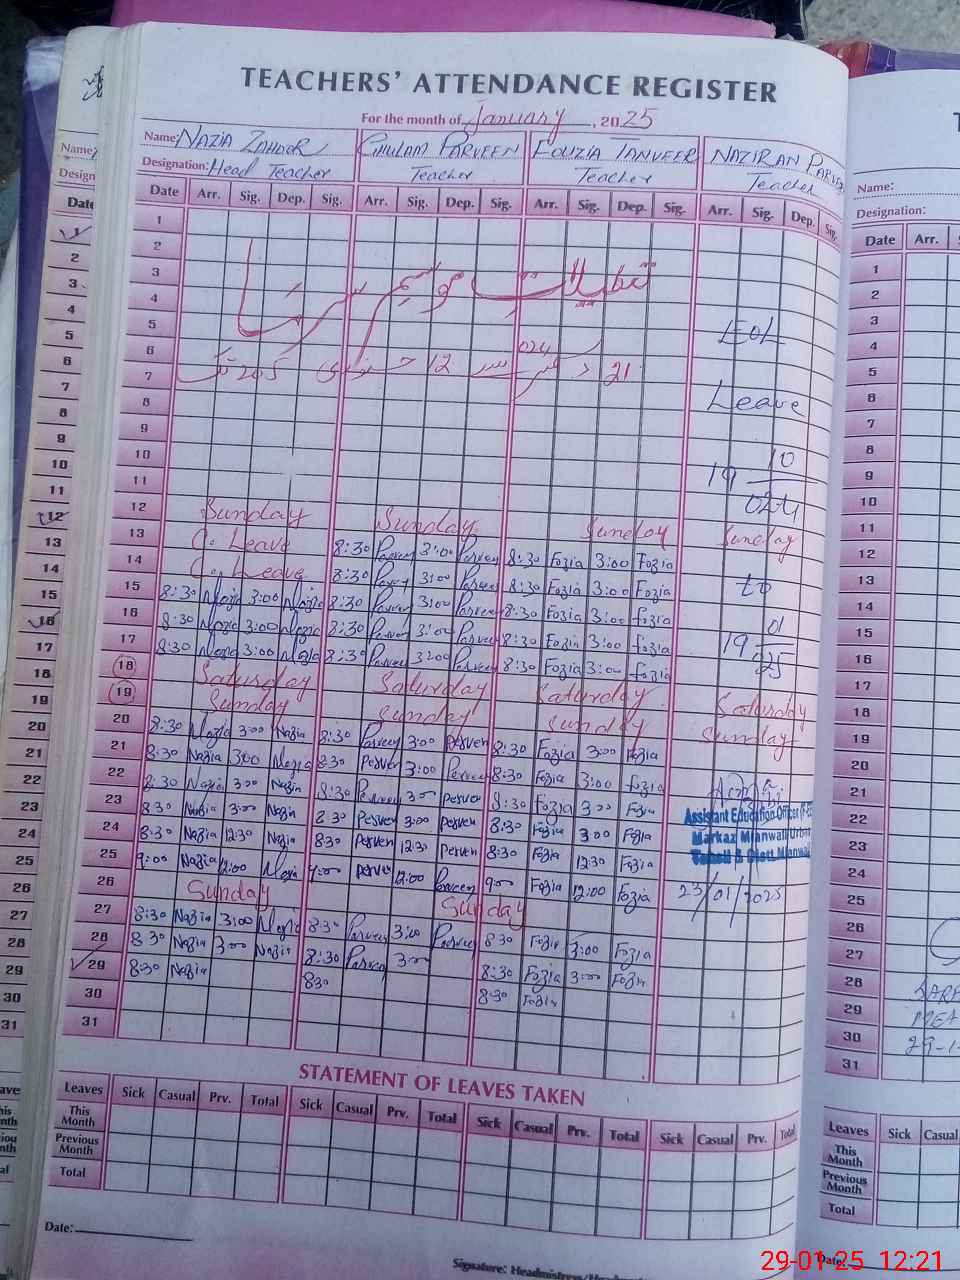 TEACHERS' ATTENDANCE REGISTER
For the month of January, 2025
Name: NAZIA ZAHOOR GHULAM PARVEEN FOUZIA TANVEER NAZIRAN PARV
Designation: Head Teacher Teacher Teacher Teacher
Date Arr. Sig. Dep. Sig. Arr. Sig. Dep. Sig. Arr. Sig. Dep. Sig. Arr. Sig. Dep. Sig.
1
2
3
تعطیلات موسم سرما
4
5
EOL
6
7
21 دسمبر 024 سے 12 جنوری 2025 تک
8
Leave
9
10
19 10
11
024
12 Sunday Sunday Sunday Sunday
13 C. Leave 8:30 Parveen 3:00 Parveen 8:30 Fozia 3:00 Fozia
14 C. Leave 8:30 Parveen 3:00 Parveen 8:30 Fozia 3:00 Fozia to
15 8:30 Nazia 3:00 Nazia 8:30 Parveen 3:00 Parveen 8:30 Fozia 3:00 Fozia
16 8:30 Nazia 3:00 Nazia 8:30 Parveen 3:00 Parveen 8:30 Fozia 3:00 Fozia 19 01
17 8:30 Nazia 3:00 Nazia 8:30 Parveen 3:00 Parveen 8:30 Fozia 3:00 Fozia 25
18 Saturday Saturday Saturday Saturday
19 Sunday Sunday Sunday Sunday
20 8:30 Nazia 3:00 Nazia 8:30 Parveen 3:00 Perven 8:30 Fozia 3:00 Fozia
21 8:30 Nazia 3:00 Nazia 8:30 Perven 3:00 Perven 8:30 Fozia 3:00 Fozia
22 8:30 Nazia 3:00 Nazia 8:30 Perveen 3:00 Perven 8:30 Fozia 3:00 Fozia
23 8:30 Nazia 3:00 Nazia 8:30 Perven 3:00 Perven 8:30 Fozia 3:00 Fozia
Assistant Education Officer
Markaz Mianwali Urban
Tehsil & Distt Mianwali
24 8:30 Nazia 12:30 Nazia 8:30 Perven 12:30 Perven 8:30 Fozia 12:30 Fozia
25 9:00 Nazia 12:00 Nazia 9:00 Perven 12:00 Parveen 9:00 Fozia 12:00 Fozia 23/01/2025
26 Sunday Sunday
27 8:30 Nazia 3:00 Nazia 8:30 Parveen 3:00 Parveen 8:30 Fozia 3:00 Fozia
28 8:30 Nazia 3:00 Nazia 8:30 Parveen 3:00 8:30 Fozia 3:00 Fozia
29 8:30 Nazia 8:30 8:30 Fozia
30
31
STATEMENT OF LEAVES TAKEN
Leaves Sick Casual Prv. Total Sick Casual Prv. Total Sick Casual Prv. Total Sick Casual Prv. Total
This Month
Previous Month
Total
Date:
Signature: Headmistress/
Name:
Designation:
Date Arr.
1
2
3
4
5
6
7
8
9
10
11
12
13
14
15
16
17
18
19
20
21
22
23
24
25
26
27
28
29
30
31
Leaves Sick Casual
This Month
Previous Month
Total
Date:
29-01-25 12:21